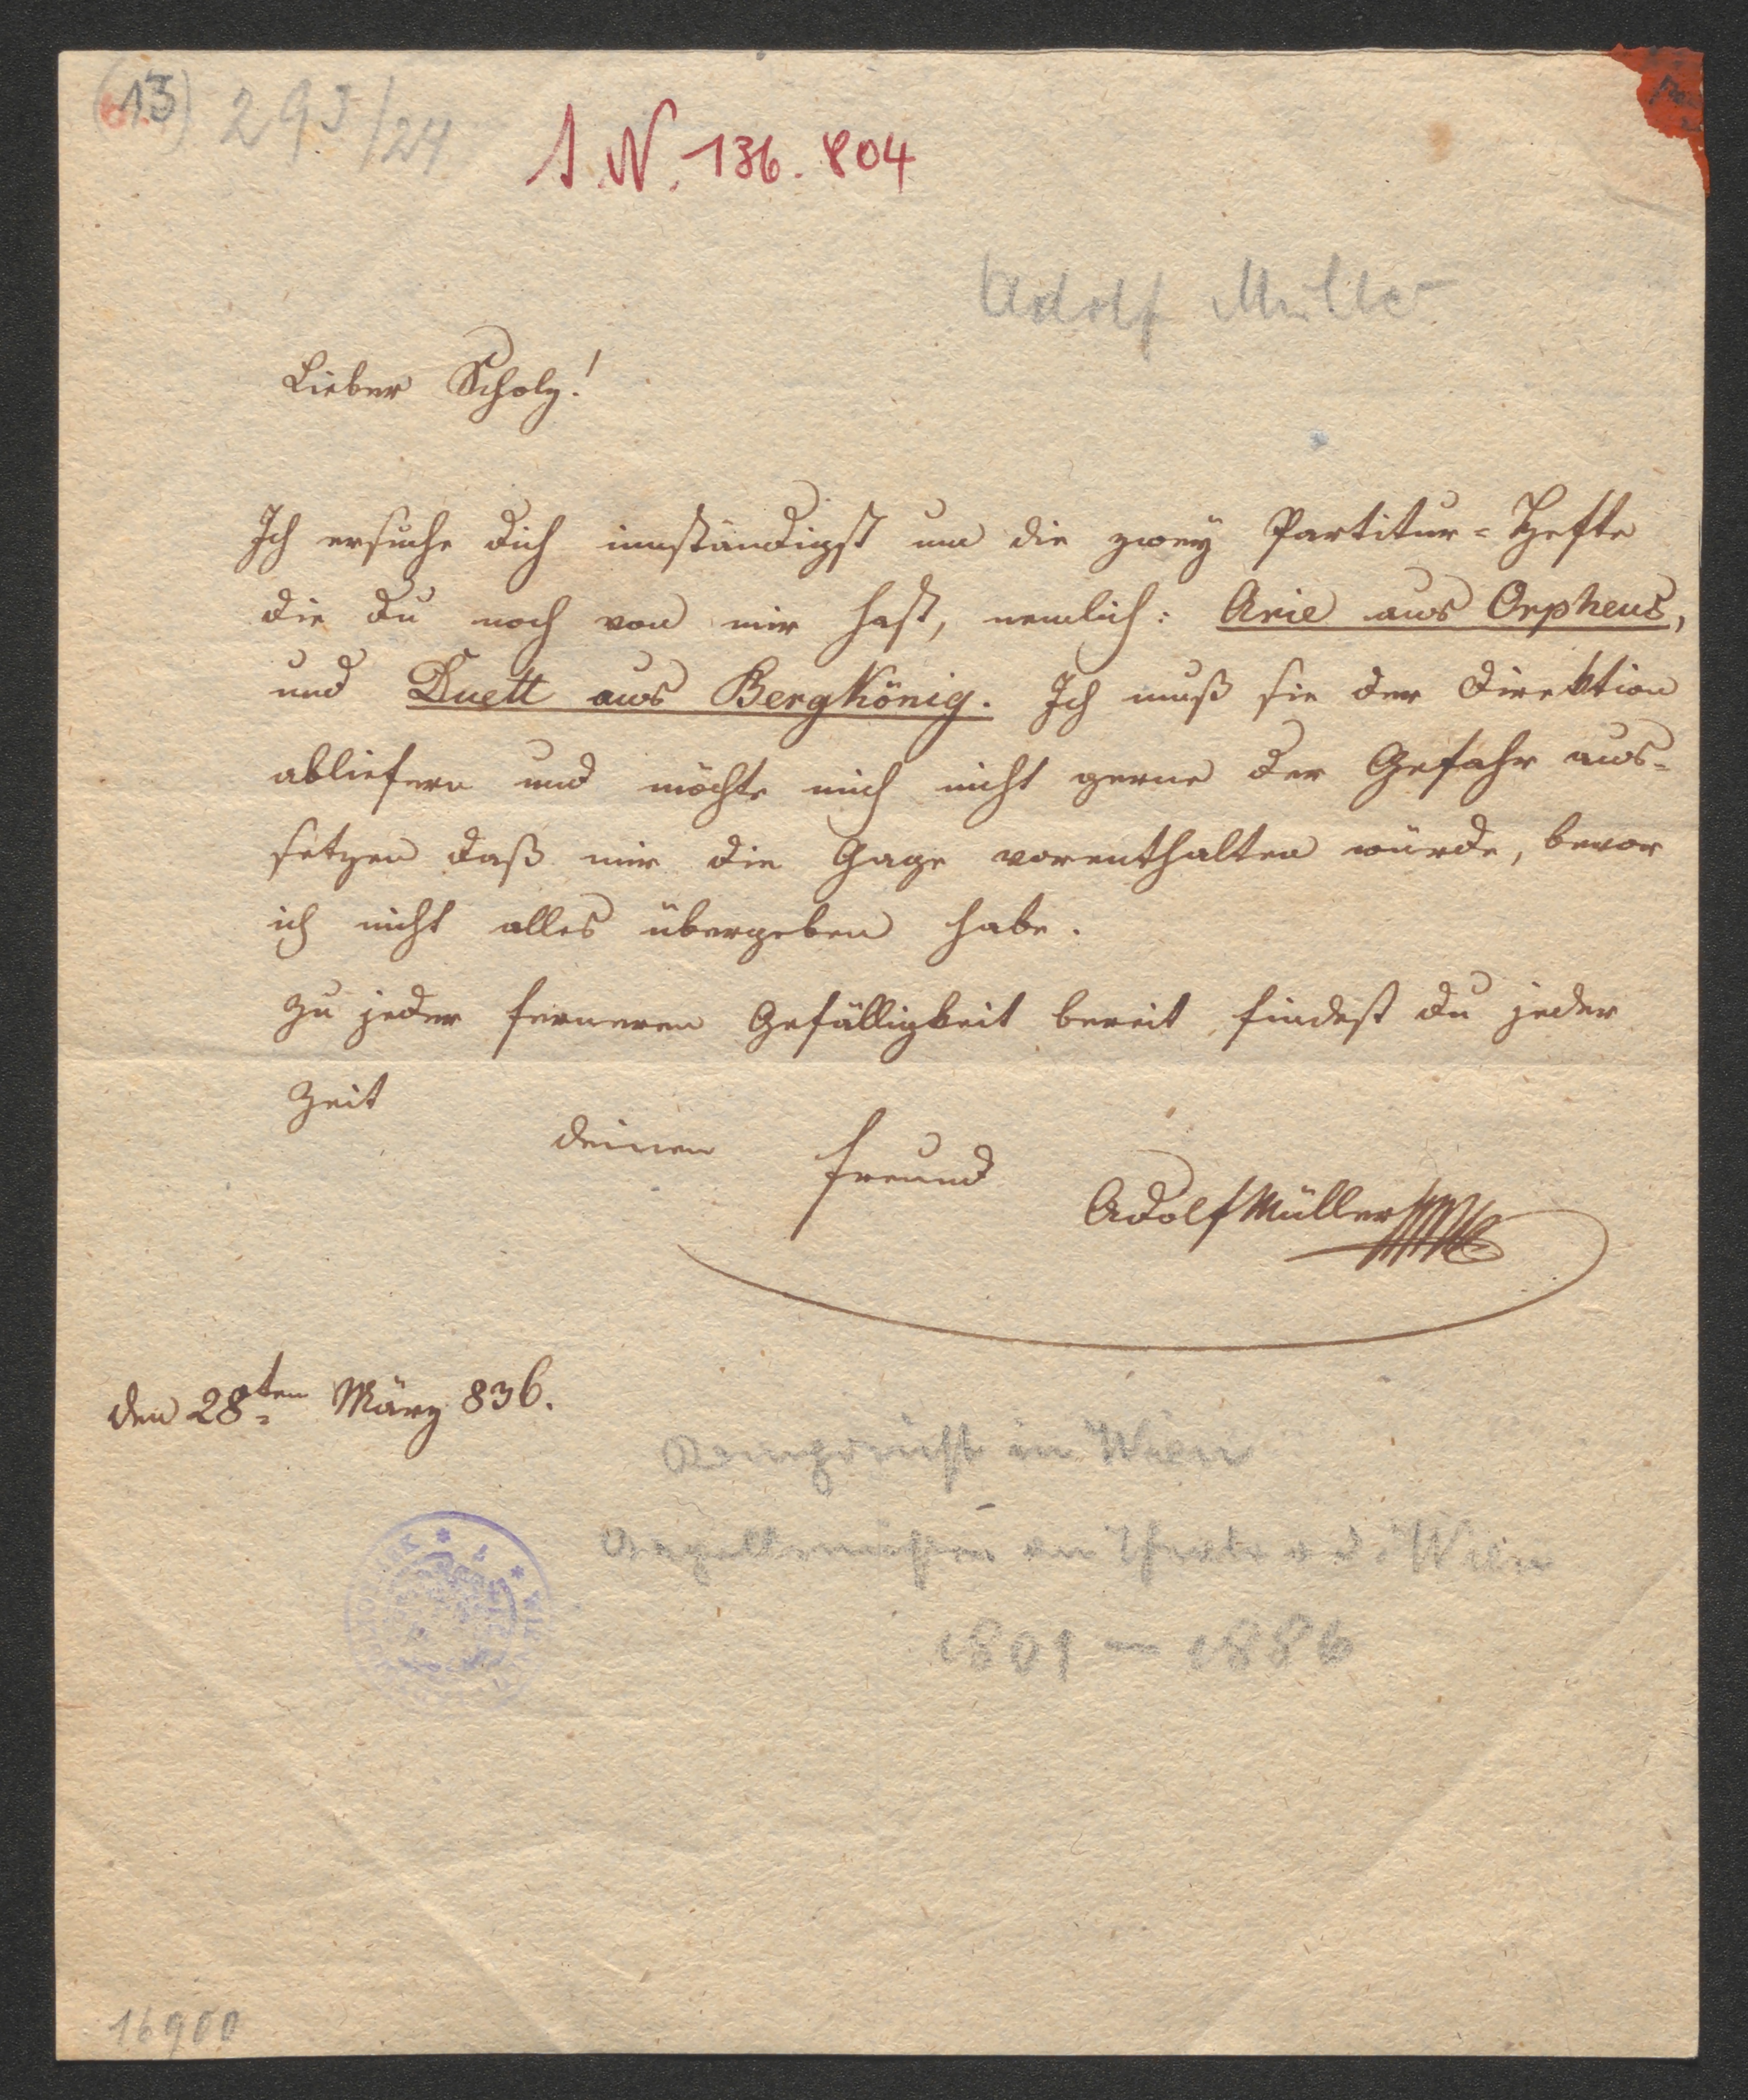 (13) 293/24
I.N. 136.804
Adolf Müller
Lieber Scholz!
Ich ersuche dich innständigst um die zwey Partitur=Hefte
die du noch von mir hast, nemlich: Arie aus Orpheus,
und Duett aus BergKönig. Ich muß sie der Direktion
abliefern und möchte mich nicht gerne der Gefahr aus=
setzen daß mir die Gage vorenthalten würde, bevor
ich nicht alles übergeben habe.
Zu jeder ferneren Gefälligkeit bereit, findest du jeder
Zeit
deinen Freund Adolf Müller
den 28ten März 836.
Komponist in Wien
Kapellmeister am Theater a. d. Wien
1801 – 1886
16900